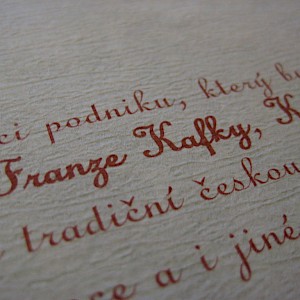 podniku, který
Franze Kafky,
tradiční českou
a i jiné